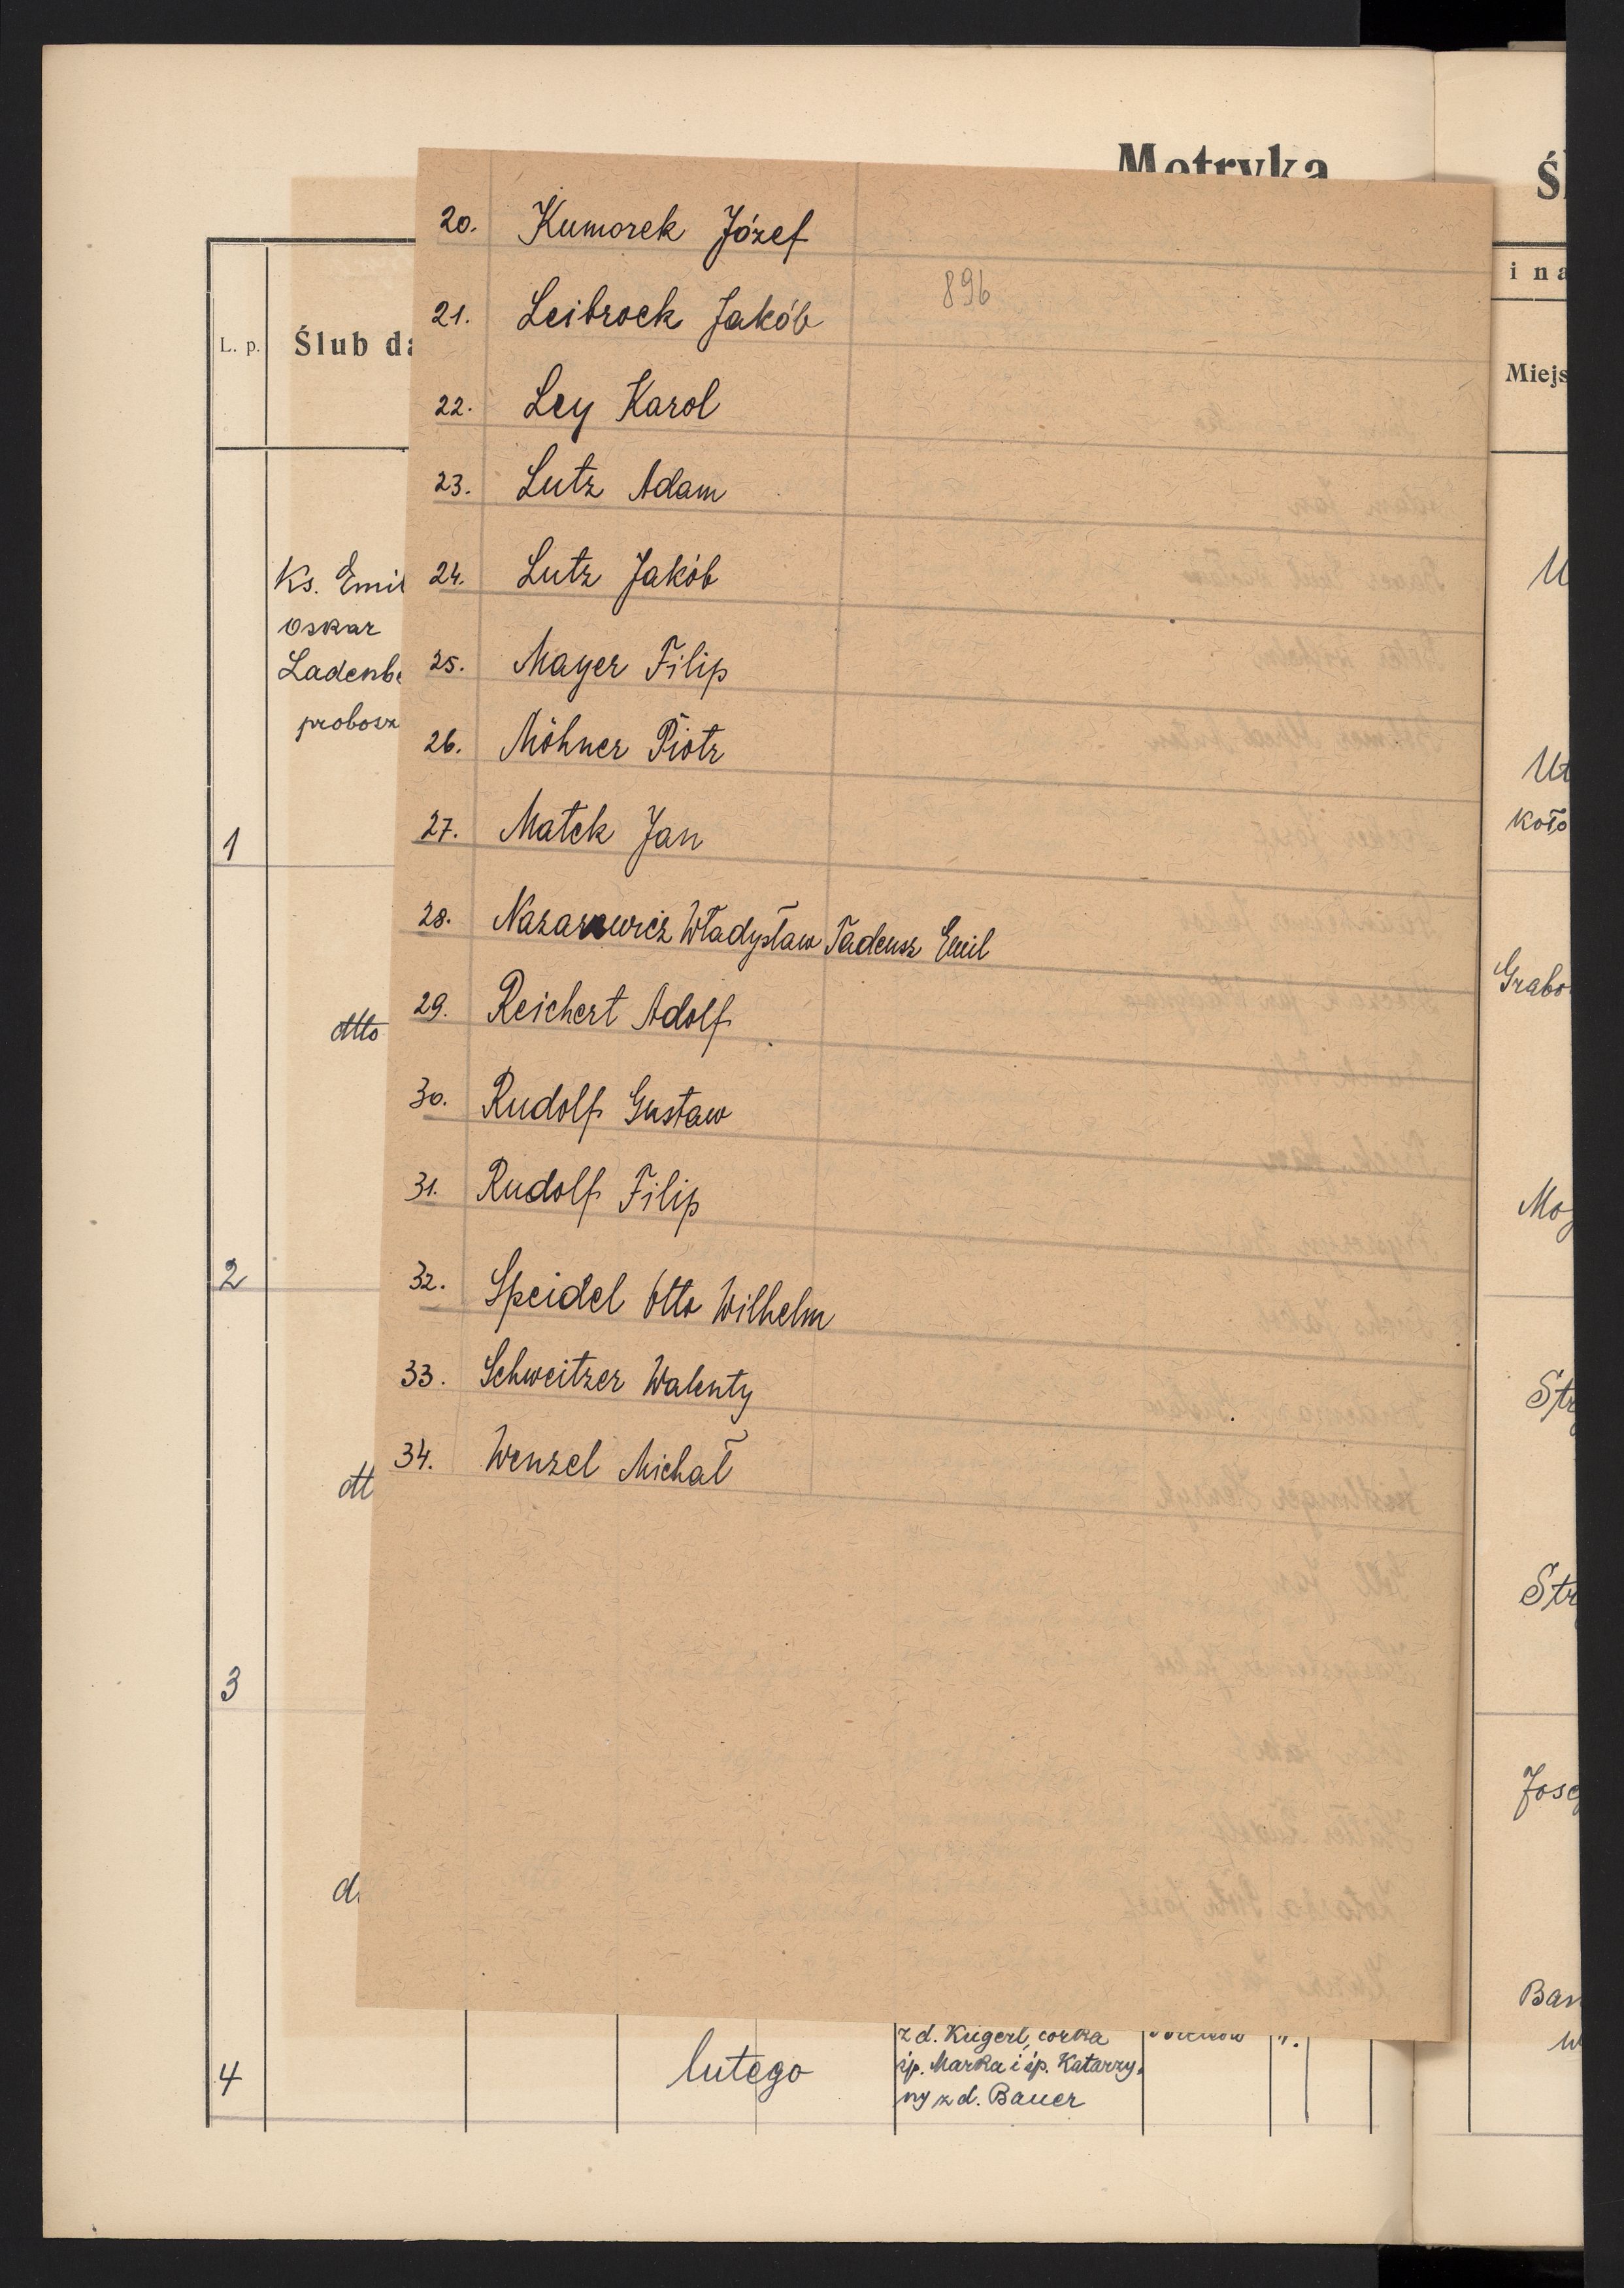 Metryka
Śl
i na
L. p.
Ślub da
Miejs
20. Kumorek Józef
896
21. Leibrock Jakób
22. Ley Karol
23. Lutz Adam
24. Lutz Jakób
25. Mayer Filip
26. Möhner Piotr
27. Matek Jan
28. Nazarewicz Władysław Tadeusz Emil
29. Reichert Adolf
30. Rudolf Gustaw
31. Rudolf Filip
32. Speidel Otto Wilhelm
33. Schweitzer Walenty
34. Wenzel Michał
Ks. Emil
Oskar
Ladenbe
probosz
1
dtto
2
dtt
3
d
4
lutego
z d. Kügerl, córka
śp. Marka i śp. Katarzy-
ny z d. Bauer
Ut
koło
Grabo
Mo
Str
Str
Jose
Ban
w